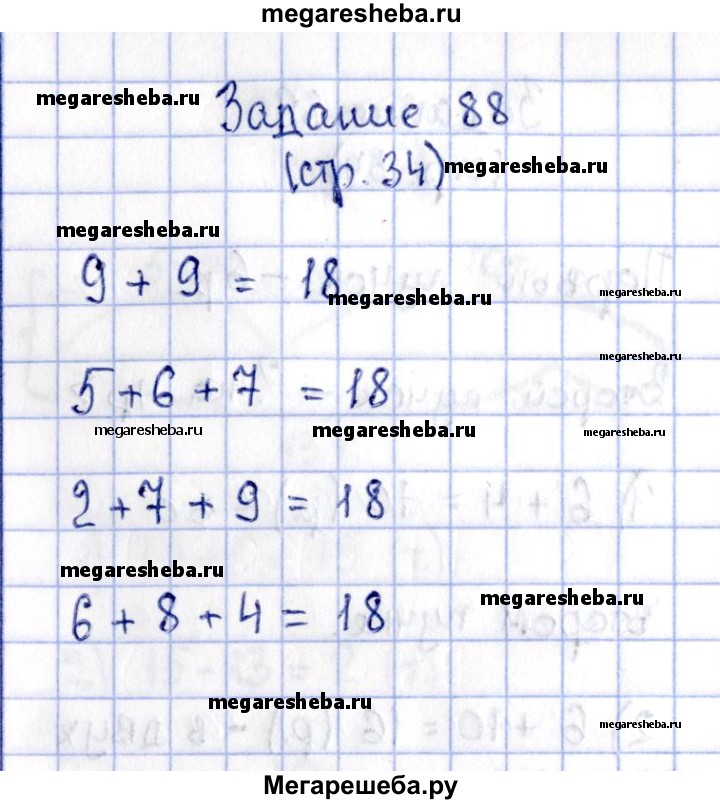 megaresheba.ru
megaresheba.ru
Задание 88
(стр. 34)
megaresheba.ru
megaresheba.ru
9 + 9 = 18
megaresheba.ru
megaresheba.ru
megaresheba.ru
5 + 6 + 7 = 18
megaresheba.ru
megaresheba.ru
megaresheba.ru
2 + 7 + 9 = 18
megaresheba.ru
megaresheba.ru
6 + 8 + 4 = 18
megaresheba.ru
megaresheba.ru
Мегарешеба.ру